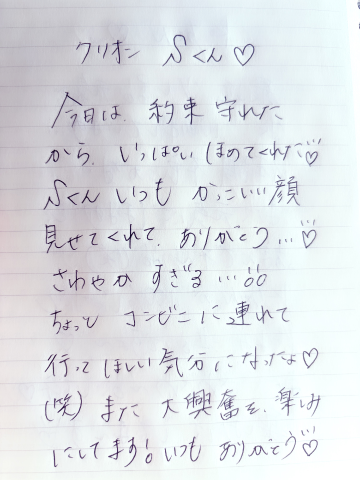 クリオン Sくん♡
今日は、約束 守れた
から、いっぱい ほめてくれた♡
Sくん いつも かっこいい顔
見せてくれて、ありがとう…♡
さわやか すぎる…
ちょっと コンビニに連れて
行ってほしい気分になったよ♡
(笑) また 大興奮を、楽しみ
にしてます!いつも ありがとう♡